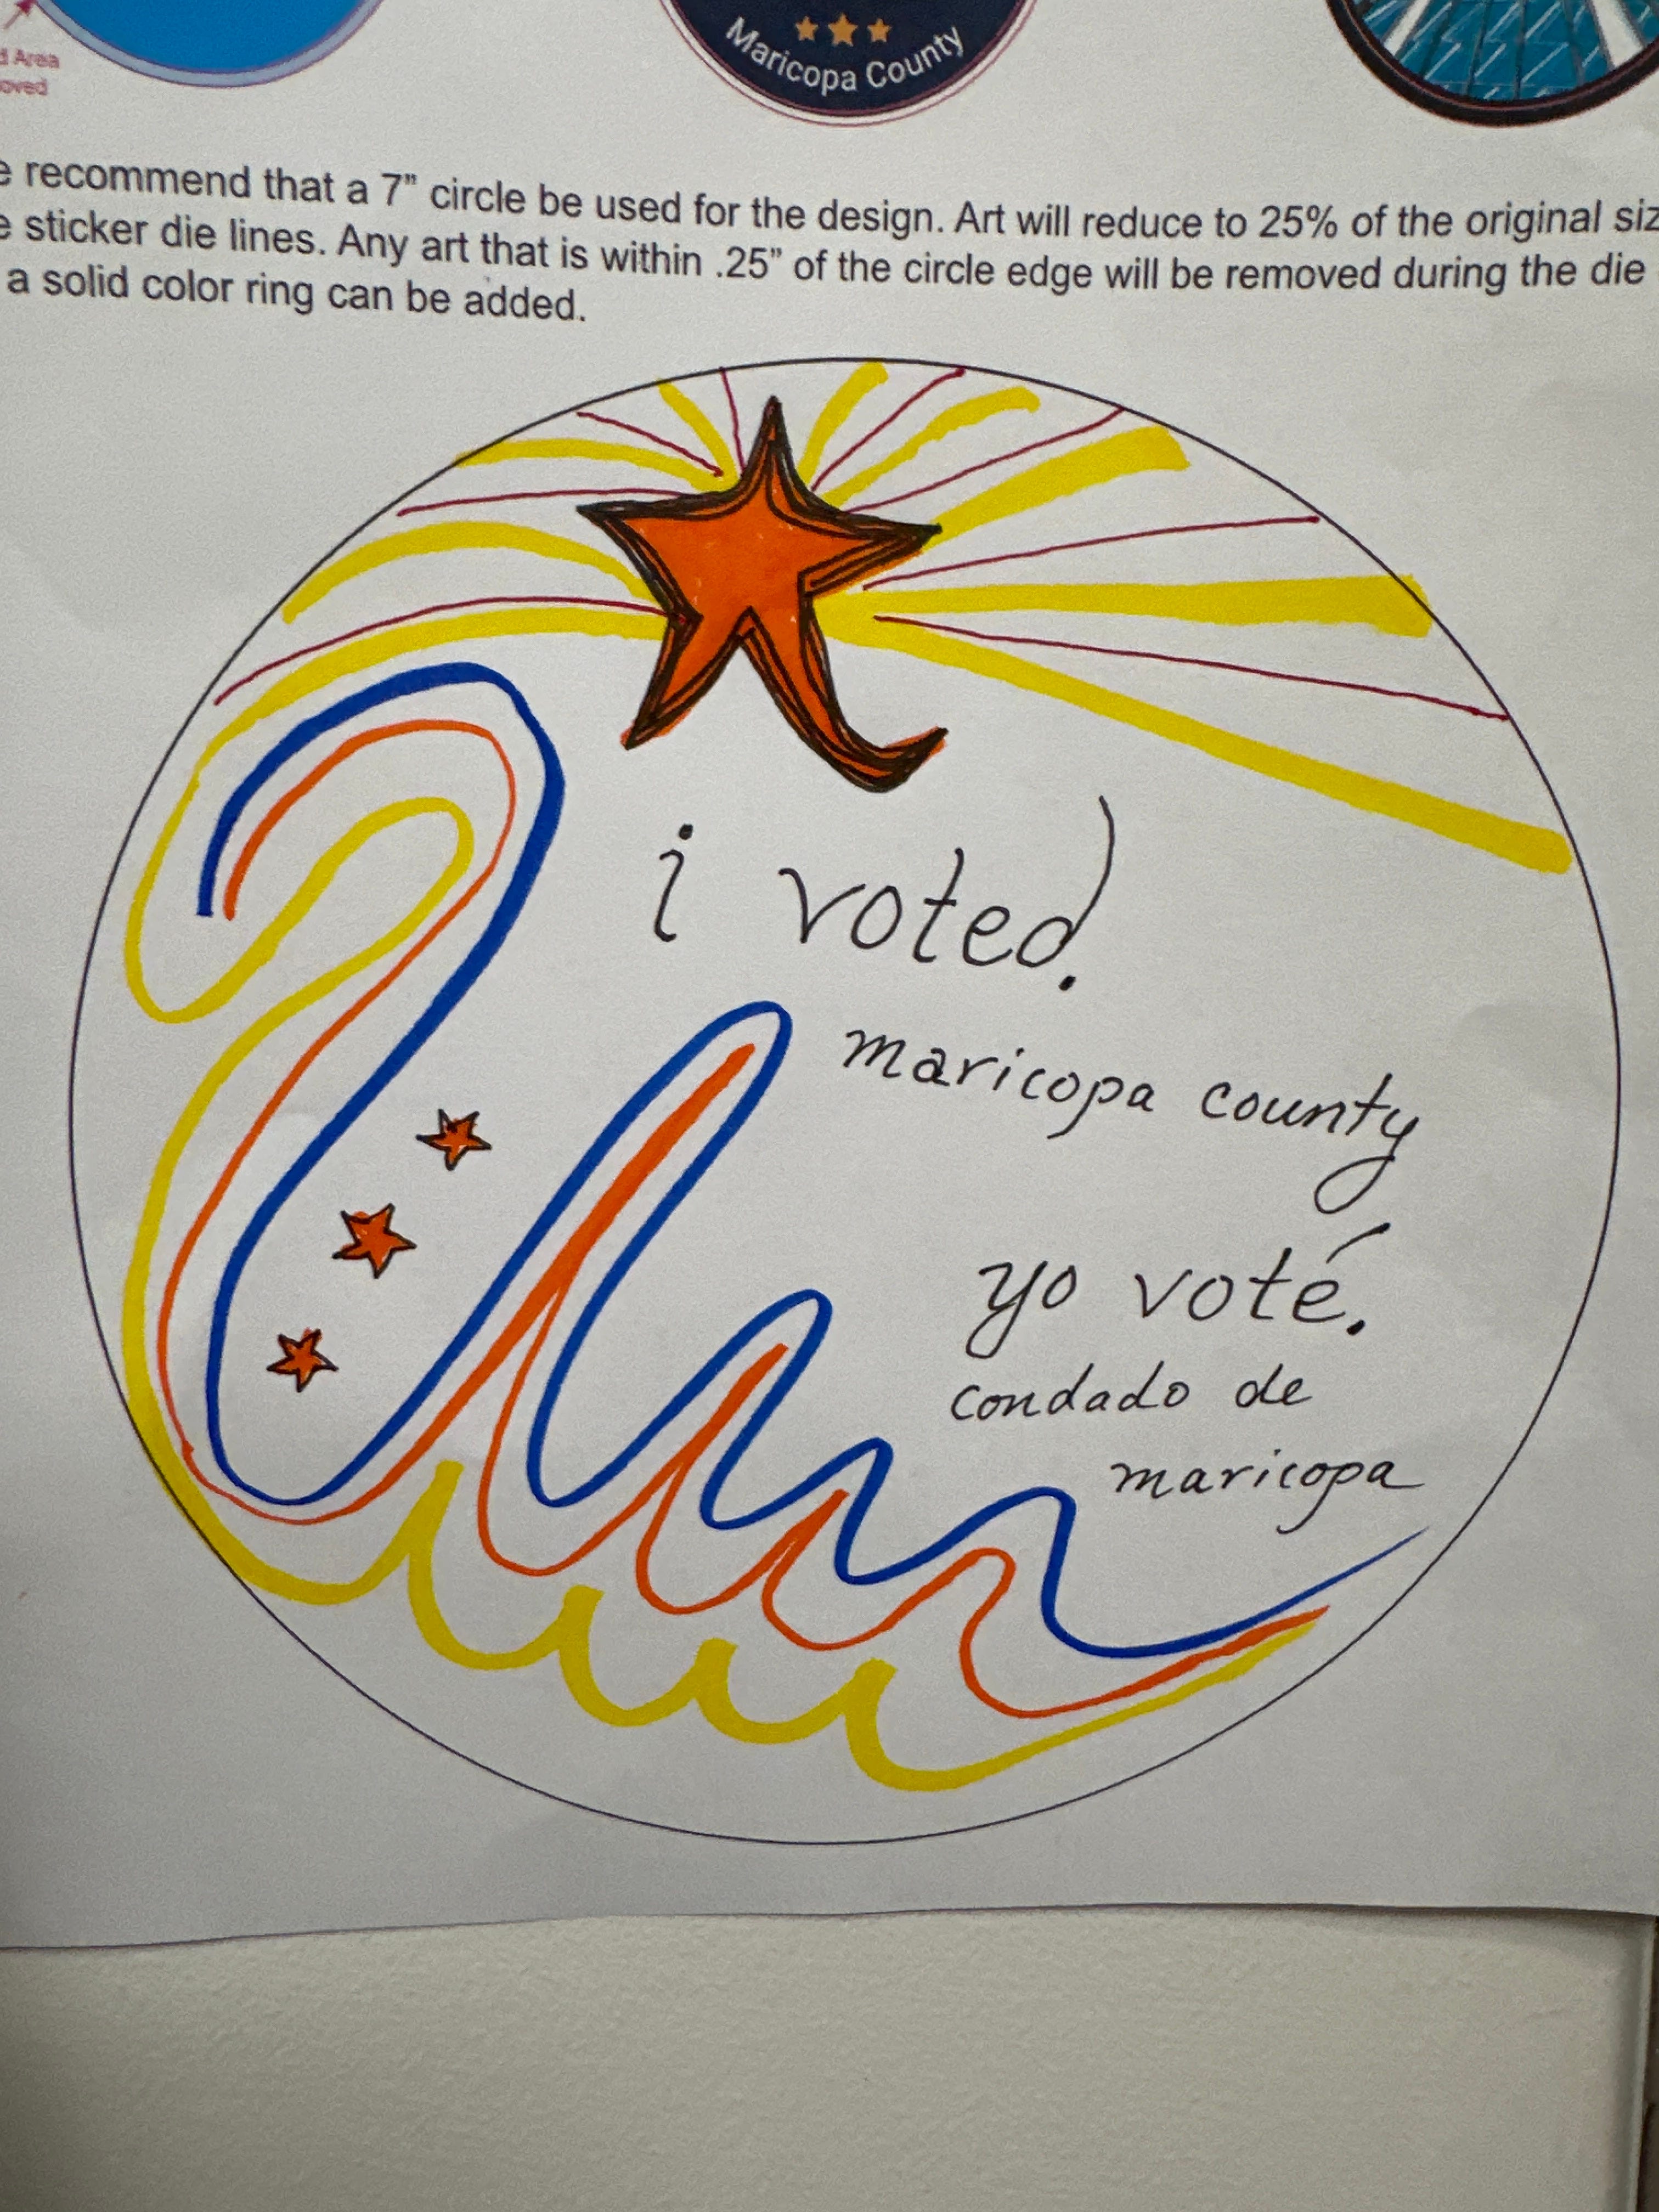 d Area
oved
Maricopa County
e recommend that a 7” circle be used for the design. Art will reduce to 25% of the original siz
e sticker die lines. Any art that is within .25” of the circle edge will be removed during the die
a solid color ring can be added.
i voted.
maricopa county
yo voté.
condado de
maricopa